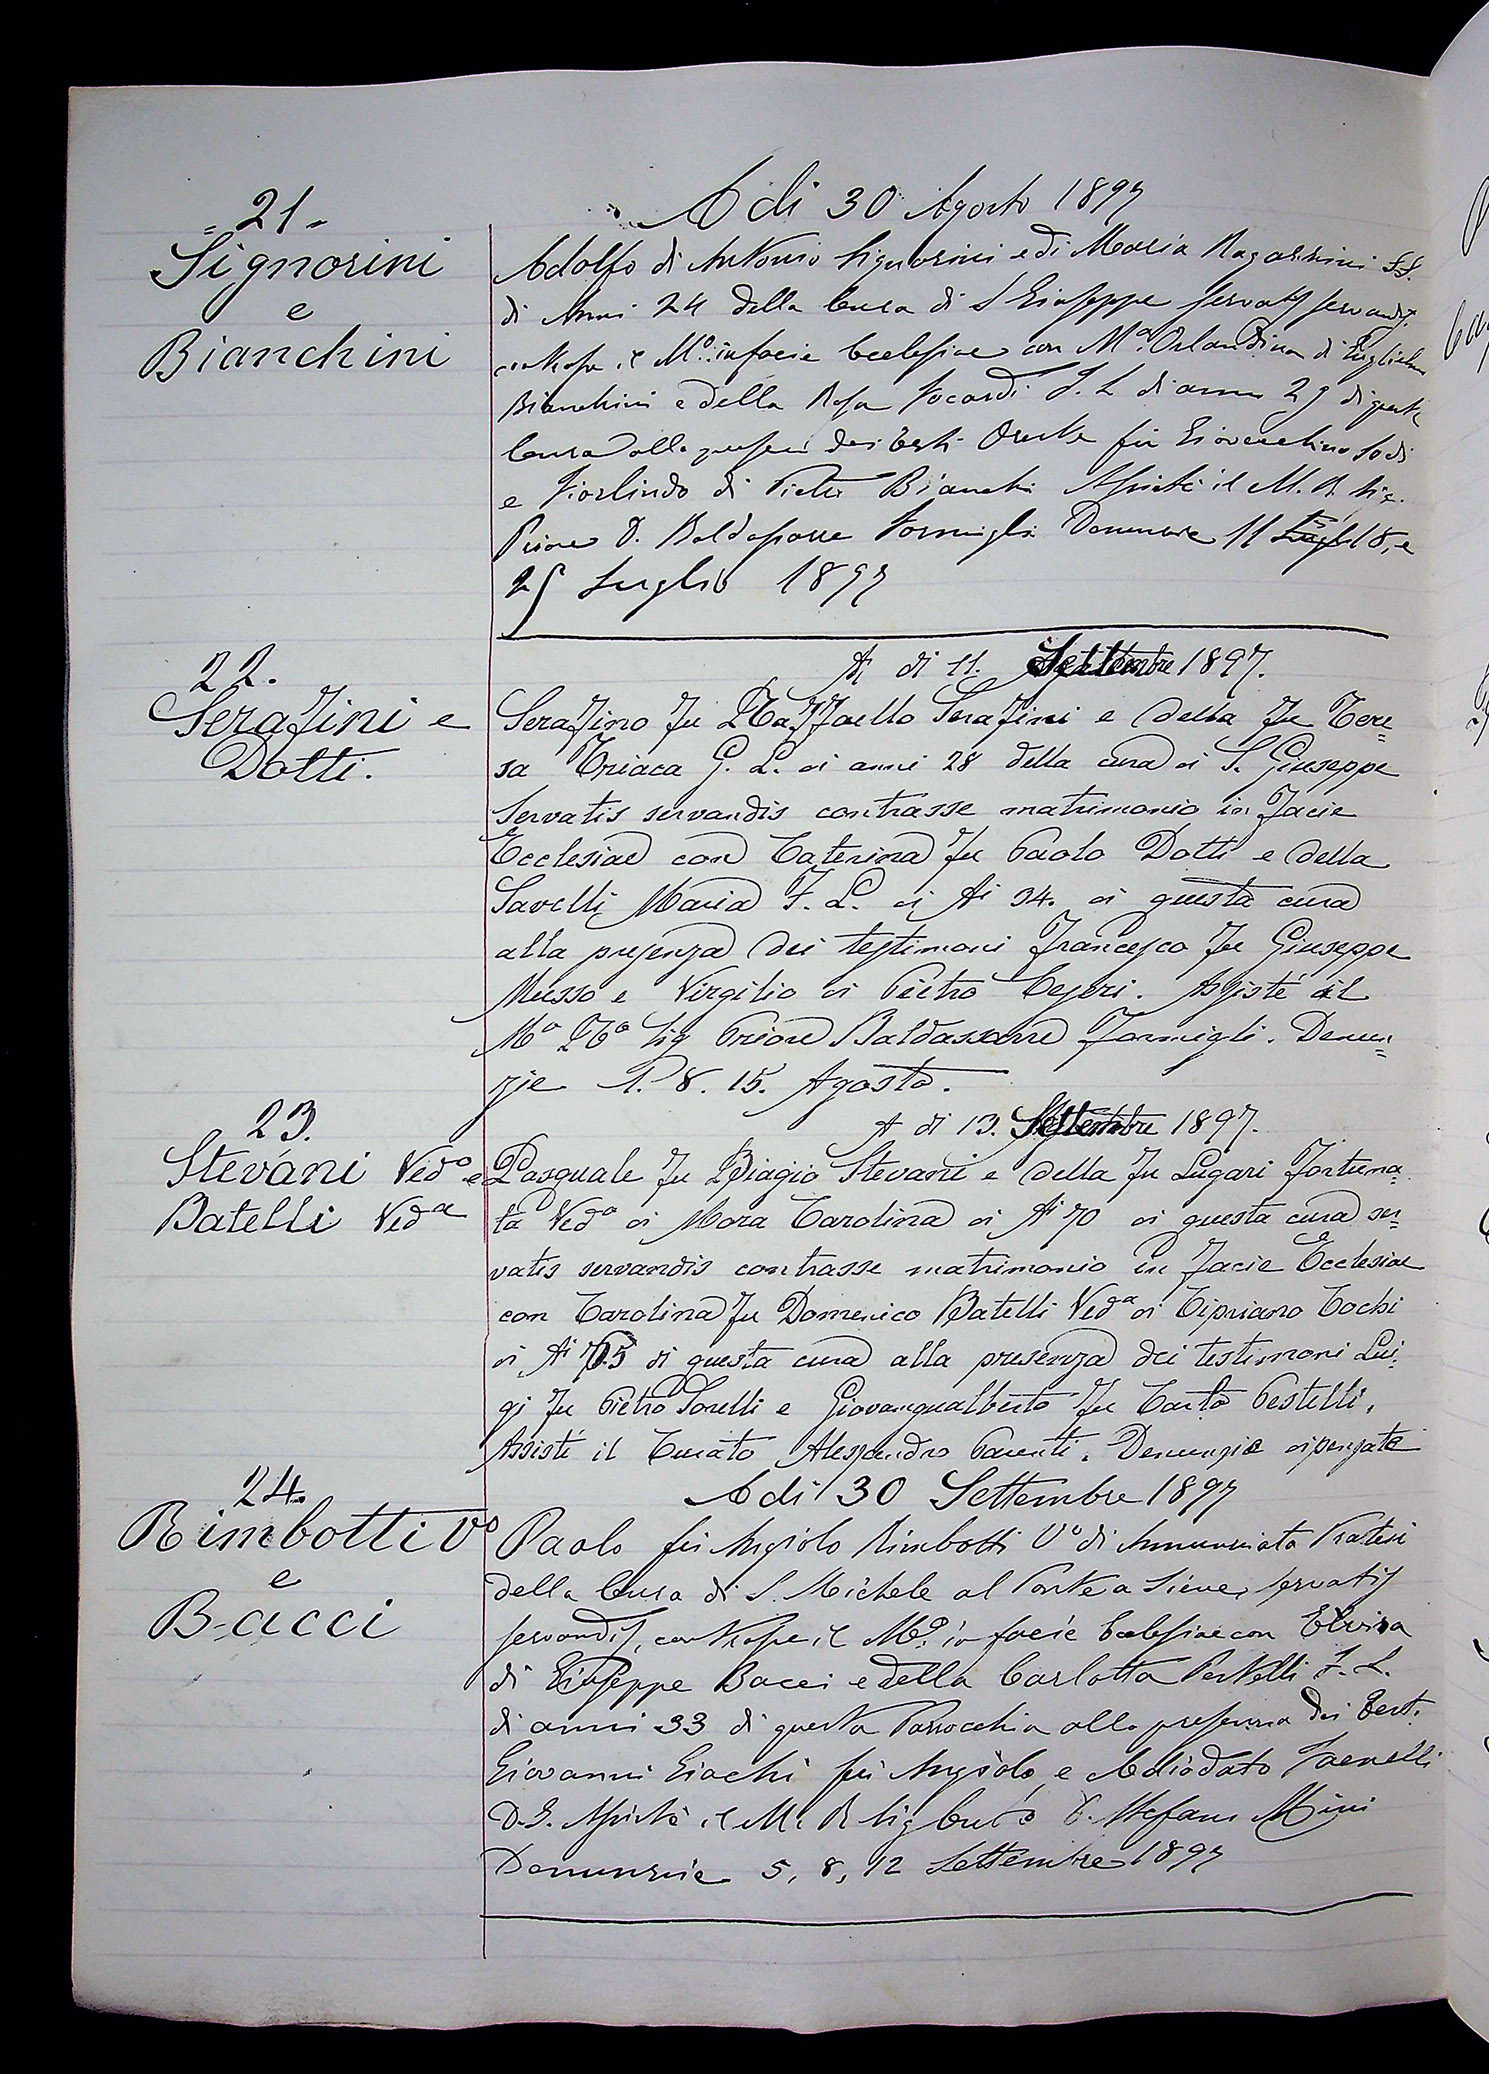 - 21 -
Signorini
e
Bianchini
A di 30 Agosto 1897
Adolfo di Antonio Signorini e di Maria Ragazzini
di Anni 24 della Cura di S Giuseppe servatis servandis
contrasse il Mº in facie Ecclesiae con Mª Orlandina di Guglielmo
Bianchini e della Rosa Socardi F. L. di anni 29 di questa
Cura alla presenza dei Testi Oreste fu Giovacchino Sodi
e Fiorlindo di Pietro Bianchi Assistè il M. R. Sig.
Priore D. Baldassarre Formigli Denunzie 11 18, e
25 Luglio 1897
22.
Serafini e
Dotti.
A di 11. Settembre 1897.
Serafino fu Raffaello Serafini e della fu Tere=
sa Triaca G. L. di anni 28 della cura di S. Giuseppe
Servatis servandis contrasse matrimonio in facie
Ecclesiae con Caterina fu Paolo Dotti e della
Savelli Maria F. L. di Ai 34. di questa cura
alla presenza dei testimoni Francesco fu Giuseppe
Musso e Virgilio di Pietro Ceseri. Assisté il
Mº Rº Sig Priore Baldassarre Formigli. Denun=
zie 1. 8. 15. Agosto.
23.
Stevani Vedº e
Batelli Vedª
A di 13. Settembre 1897.
Pasquale fu Biagio Stevani e della fu Lugari Fortuna=
ta Vedº di Mora Carolina di Ai 70 di questa cura ser=
vatis servandis contrasse matrimonio in facie Ecclesiae
con Carolina fu Domenico Batelli Vedª di Cipriano Cochi
di Ai 75 di questa cura alla presenza dei testimoni Lui=
gi fu Pietro Sorelli e Giovangualberto fu Carlo Pestelli.
Assisté il Curato Alessandro Parenti. Denunzie dispensate
24.
Rimbotti Vº
e
Bacci
A di 30 Settembre 1897
Paolo fu Angiolo Rimbotti Vº di Annunziata Pratesi
della Cura di S. Michele al Ponte a Sieve, servatis
servandis, contrasse il Mº in facie Ecclesiae con Elvira
di Giuseppe Bacci e della Carlotta Pestelli F. L.
di anni 33 di questa Parrocchia alla presenza dei Test.
Giovanni Giachi fu Angiolo, e Adiodato
D. G. Assistè il M. R. Sig Curº D. Stefano Mini
Denunzie 5, 8, 12 Settembre 1897